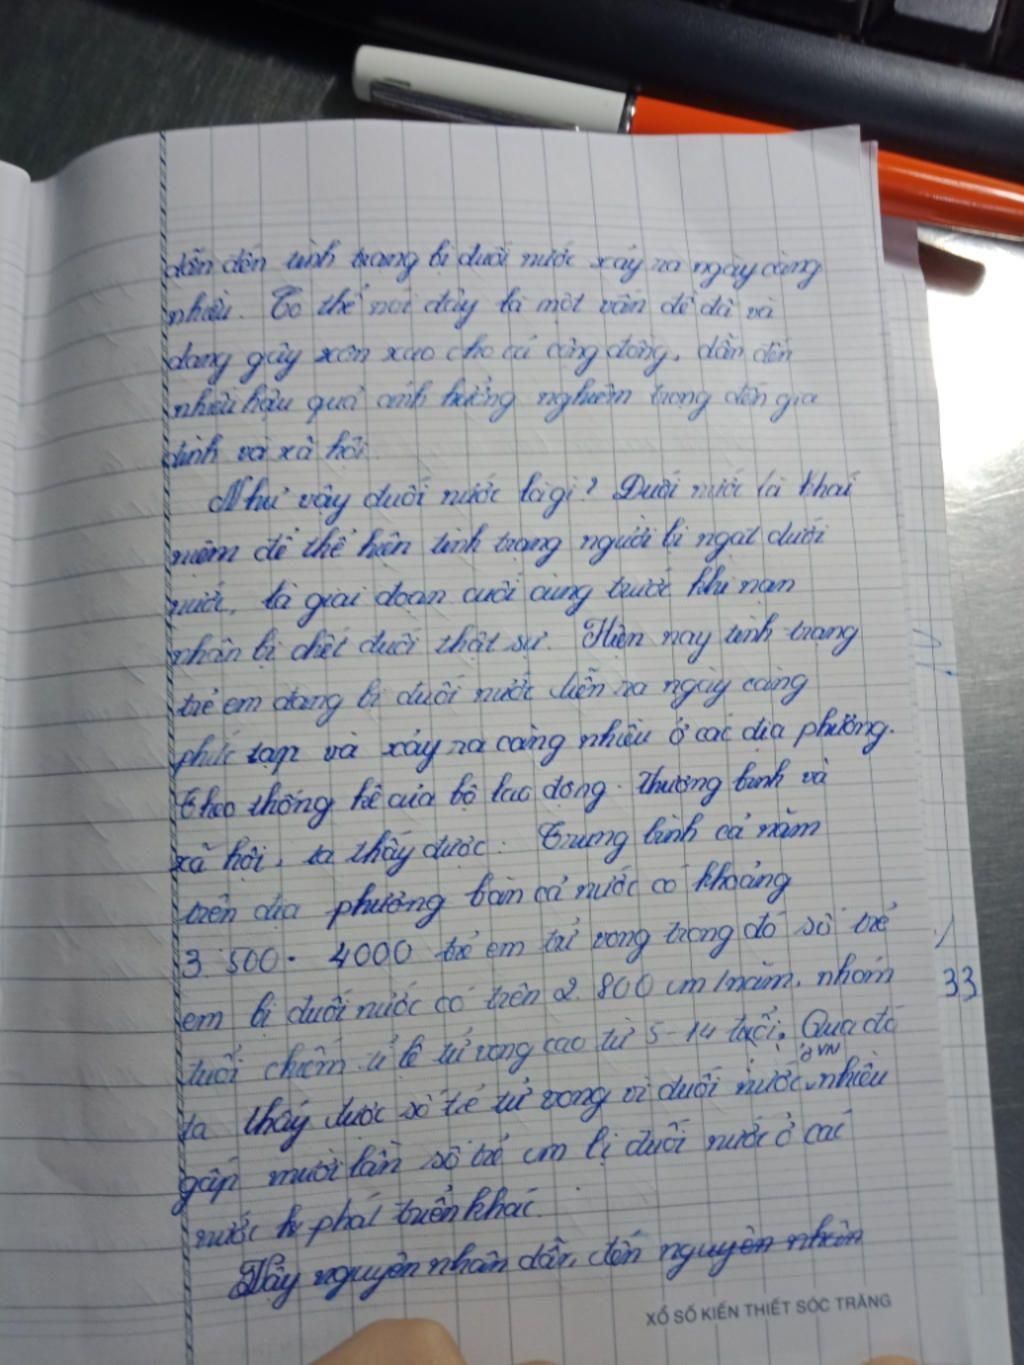 dẫn đến tình trạng bị đuối nước xảy ra ngày càng
nhiều. Có thể nói đây là một vấn đề đã và
đang gây xôn xao cho cả cộng đồng, dẫn đến
nhiều hậu quả ảnh hưởng nghiêm trọng đến gia
đình và xã hội.
Như vậy đuối nước là gì? Đuối nước là khái
niệm để thể hiện tình trạng người bị ngạt dưới
nước, là giai đoạn cuối cùng trước khi nạn
nhân bị chết đuối thật sự. Hiện nay tình trạng
trẻ em đang bị đuối nước diễn ra ngày càng
phức tạp và xảy ra càng nhiều ở các địa phương.
Theo thống kê của bộ lao động - thương binh và
xã hội, ta thấy được: Trung bình cả năm
trên địa phương bàn cả nước có khoảng
3.500 - 4000 trẻ em tử vong trong đó số trẻ
em bị đuối nước có trên 2.800 em/năm, nhóm
33
tuổi chiếm tỉ lệ tử vong cao từ 5-14 tuổi. Qua đó
ở VN
ta thấy được số trẻ tử vong vì đuối nước nhiều
gấp mười lần số trẻ em bị đuối nước ở các
nước phát triển khác.
Vậy nguyên nhân dẫn đến nguyên nhân
XỔ SỐ KIẾN THIẾT SÓC TRĂNG